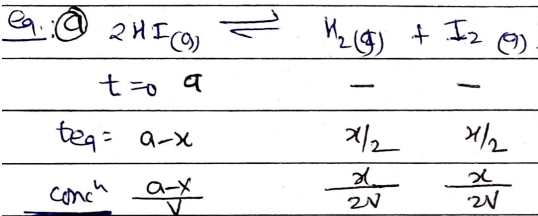 Eq.: ⓐ 2HI(g) ⇌ H2(g) + I2(g)
t=0 a — —
teq= a-x x/2 x/2
concn (a-x)/V x/2V x/2V